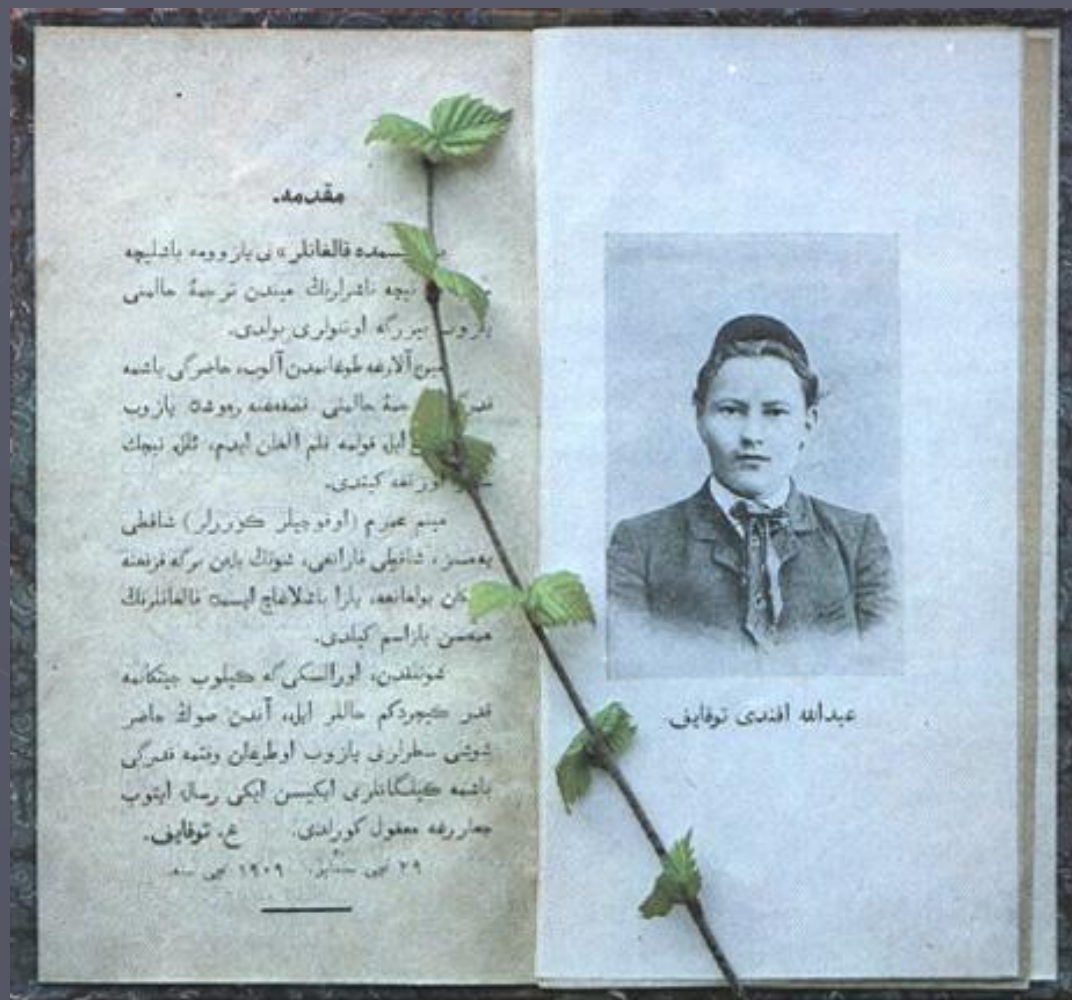 مقدمه.
قالغانلر» نی یازوومه باشلیچه
نیچه ناشرلرنڭ میندن ترجمهٔ حالمنی
یازوب بیررگه اوتنولری بولدی.
آلارغه طوغانمدن آلوب، حاضرگی باشمه
حالمنی یازوب
ایله قولمه قلم آلغان ایدم،
کیتدی.
مینم محررم (اوقوچیلر کوررلر) شاقطی
شاقطی قارانغی، شونڭ بلەن برگه
بولغانغه، یارا باشلاغاچ ایسمده قالغانلرنڭ
همه‌سن یازاسم کیلدی.
شوننڭدن، اورالسکی گه کیلوب جیتکانمه
قدر کیچردکم حاللر ایله، آندن صوڭ حاضر
شوشی سطرلرنی یازوب اوطرغان وقتمه قدرگی
باشمه کیلگانلری ایکیسن ایکی رساله ایتوب
چغاررغه معقول کورلدی. ع. توقایف.
٢٩ نچی سنتابر، ١٩٠٩ نچی سنه.
عبدالله افندی توقایف